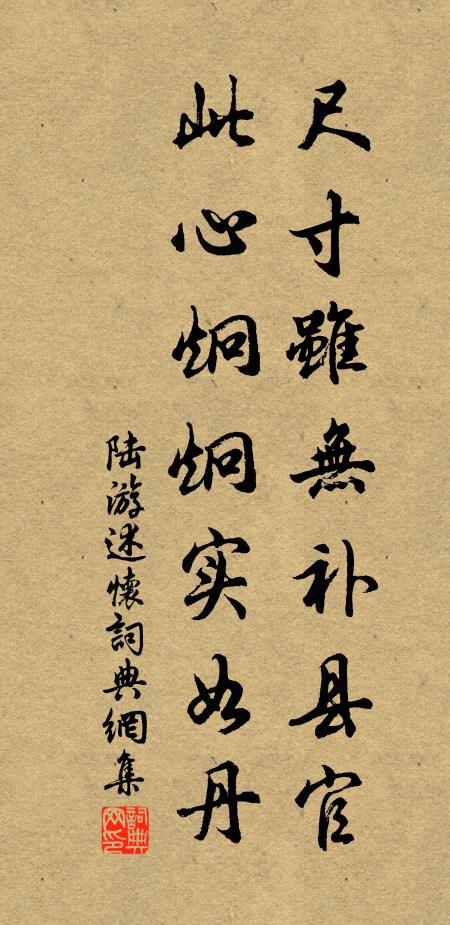 尺寸雖無补县官
此心炯炯实如丹
陆游述懷詞典網集
詞典
网印